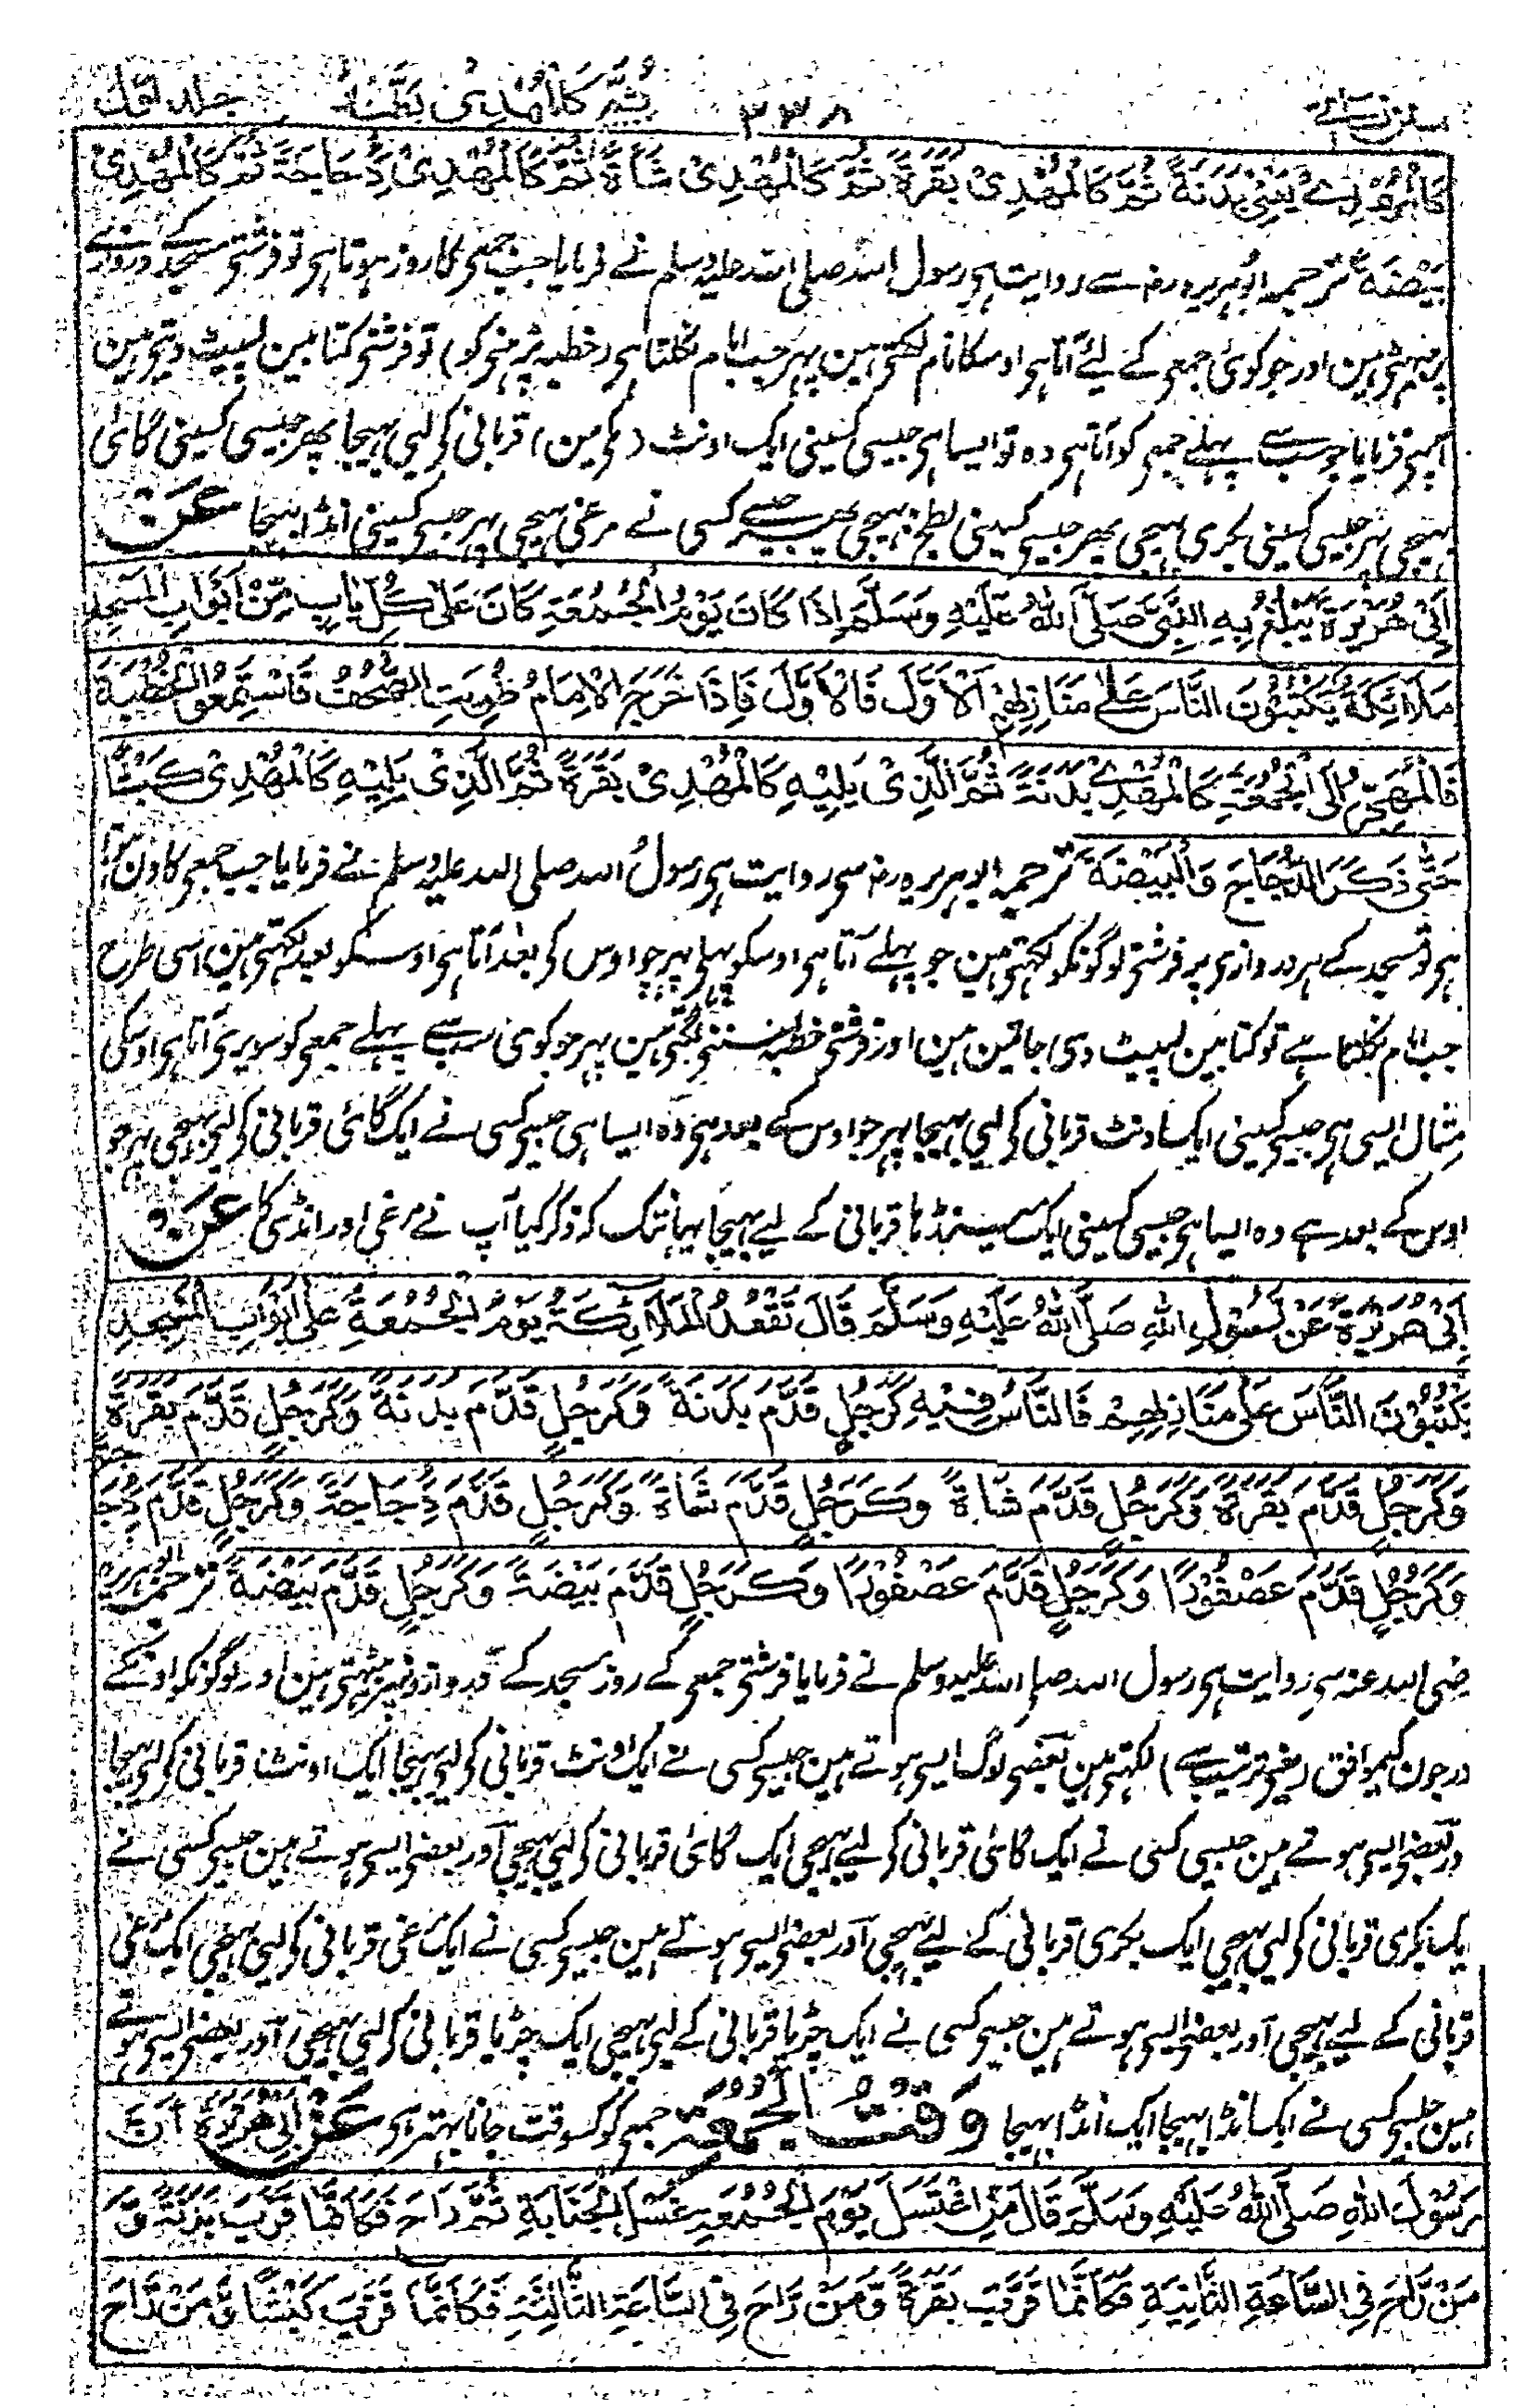 سنن نسائی ۳۳۸ ثُمَّ كَالْمُهْدِیْ بَطَّةً جلد اول
كَالْمُهْدِیْ يَعْنِیْ بَدَنَةً ثُمَّ كَالْمُهْدِیْ بَقَرَةً ثُمَّ كَالْمُهْدِیْ شَاةً ثُمَّ كَالْمُهْدِیْ دُجَاجَةً ثُمَّ كَالْمُهْدِیْ
بَيْضَةً ترجمہ ابوہریرہ رض سے روایت ہی رسول اللہ صلی اللہ علیہ وسلم نے فرمایا جب جمعی کا روز ہوتا ہی تو فرشتی مسجد کے دروازے
پر بیٹہتی ہین اور جو کوئی جمعی کے لئے آتا ہی اوسکا نام لکہتی ہین پہر جب امام نکلتا ہی (خطبہ پڑہنی کو) تو فرشتی کتابین لپیٹ دیتی ہین
آپنی فرمایا جو سب سے پہلے جمعی کو آتا ہی وہ تو ایسا ہی جیسی کسینی ایک اونٹ (مکی مین) قربانی کی لیی بہیجا پھر جیسی کسینی گائی
بہیجی پہر جیسی کسینی بکری بہیجی پھر جیسی کسینی بطخ بہیجی پھر جیسے کسی نے مرغی بہیجی پہر جیسی کسینی انڈا بہیجا عَنْ
اَبِیْ هُرَيْرَةَ يَبْلُغُ بِهِ النَّبِیَّ صَلَّی اللهُ عَلَيْهِ وَسَلَّمَ اِذَا كَانَ يَوْمُ الْجُمُعَةِ كَانَ عَلٰی كُلِّ بَابٍ مِّنْ اَبْوَابِ الْمَسْجِدِ
مَلَائِكَةٌ يَكْتُبُوْنَ النَّاسَ عَلٰی مَنَازِلِهِمْ اَلْاَوَّلَ فَالْاَوَّلَ فَاِذَا خَرَجَ الْاِمَامُ طُوِيَتِ الصُّحُفُ فَاسْتَمَعُوا الْخُطْبَةَ
فَالْمُهَجِّرُ اِلَی الْجُمُعَةِ كَالْمُهْدِیْ بَدَنَةً ثُمَّ الَّذِیْ يَلِيْهِ كَالْمُهْدِیْ بَقَرَةً ثُمَّ الَّذِیْ يَلِيْهِ كَالْمُهْدِیْ كَبْشًا
حَتّٰی ذَكَرَ الدُّجَاجَةَ وَالْبَيْضَةَ ترجمہ ابوہریرہ رض سی روایت ہی رسول اللہ صلی اللہ علیہ وسلم نے فرمایا جب جمعی کا دن ہوتا
ہی تو مسجد کے ہر دروازی پر فرشتی لوگونکو لکہتی ہین جو پہلے آتا ہی اوسکو پہلی پہر جو اوس کی بعد آتا ہی اوسکو بعد لکہتی ہین اسی طرح
جب امام نکلتا ہے تو کتابین لپیٹ دی جاتین ہین اور فرشتی خطبہ سننی لگتی ہین پہر جو کوئی سب سے پہلے جمعی کو سویری آتا ہی اوسکی
مثال ایسی ہی جیسی کسینی ایک اونٹ قربانی کی لیی بہیجا پہر جو اوس کے بعد ہی وہ ایسا ہی جیسی کسی نے ایک گائی قربانی کی لیی بہیجی پہر جو
اوس کے بعد ہے وہ ایسا ہی جیسی کسینی ایک مینڈہا قربانی کے لیے بہیجا یہانتک کہ ذکر کیا آپ نے مرغی اور انڈی کا عَنْ
اَبِیْ هُرَيْرَةَ عَنْ رَسُوْلِ اللهِ صَلَّی اللهُ عَلَيْهِ وَسَلَّمَ قَالَ تَقْعُدُ الْمَلَائِكَةُ يَوْمَ الْجُمُعَةِ عَلٰی اَبْوَابِ الْمَسْجِدِ
يَكْتُبُوْنَ النَّاسَ عَلٰی مَنَازِلِهِمْ فَالنَّاسُ فِيْهِ كَرَجُلٍ قَدَّمَ بَدَنَةً وَكَرَجُلٍ قَدَّمَ بَدَنَةً وَكَرَجُلٍ قَدَّمَ بَقَرَةً
وَكَرَجُلٍ قَدَّمَ بَقَرَةً وَكَرَجُلٍ قَدَّمَ شَاةً وَكَرَجُلٍ قَدَّمَ شَاةً وَكَرَجُلٍ قَدَّمَ دُجَاجَةً وَكَرَجُلٍ قَدَّمَ دُجَاجَةً
وَكَرَجُلٍ قَدَّمَ عَصْفُوْرًا وَكَرَجُلٍ قَدَّمَ عَصْفُوْرًا وَكَرَجُلٍ قَدَّمَ بَيْضَةً وَكَرَجُلٍ قَدَّمَ بَيْضَةً ترجمہ ابوہریرہ
رضی اللہ عنہ سی روایت ہی رسول اللہ صلی اللہ علیہ وسلم نے فرمایا فرشتی جمعی کے روز مسجد کے دروازونپر بیٹہتی ہین اور لوگونکو اونکے
درجون کی موافق (یعنی ترتیب سے) لکہتی ہین بعضی لوگ ایسی ہوتے ہین جیسی کسی نے ایک اونٹ قربانی کی لیی بہیجا ایک اونٹ قربانی کی لیی بہیجا
اور بعضی ایسی ہوتے ہین جیسی کسی نے ایک گائی قربانی کی لیے بہیجی ایک گائی قربانی کی لیی بہیجی اور بعضی ایسی ہوتے ہین جیسی کسی نے
ایک بکری قربانی کی لیی بہیجی ایک بکری قربانی کے لیے بہیجی اور بعضی ایسی ہوتے ہین جیسی کسی نے ایک مرغی قربانی کی لیی بہیجی ایک مرغی
قربانی کے لیے بہیجی اور بعضی ایسی ہوتے ہین جیسی کسی نے ایک چڑیا قربانی کے لیی بہیجی ایک چڑیا قربانی کی لیی بہیجی اور بعضی ایسی ہوتے
ہین جیسی کسی نے ایک انڈا بہیجا ایک انڈا بہیجا وَقْتُ الْجُمُعَةِ جمعی کو کسوقت جانا بہتر ہی عَنْ اَبِیْ هُرَيْرَةَ اَنَّ
رَسُوْلَ اللهِ صَلَّی اللهُ عَلَيْهِ وَسَلَّمَ قَالَ مَنِ اغْتَسَلَ يَوْمَ الْجُمُعَةِ غُسْلَ الْجَنَابَةِ ثُمَّ رَاحَ فَكَاَنَّمَا قَرَّبَ بَدَنَةً وَّ
مَنْ رَّاحَ فِی السَّاعَةِ الثَّانِيَةِ فَكَاَنَّمَا قَرَّبَ بَقَرَةً وَّمَنْ رَاحَ فِی السَّاعَةِ الثَّالِثَةِ فَكَاَنَّمَا قَرَّبَ كَبْشًا وَّمَنْ رَّاحَ